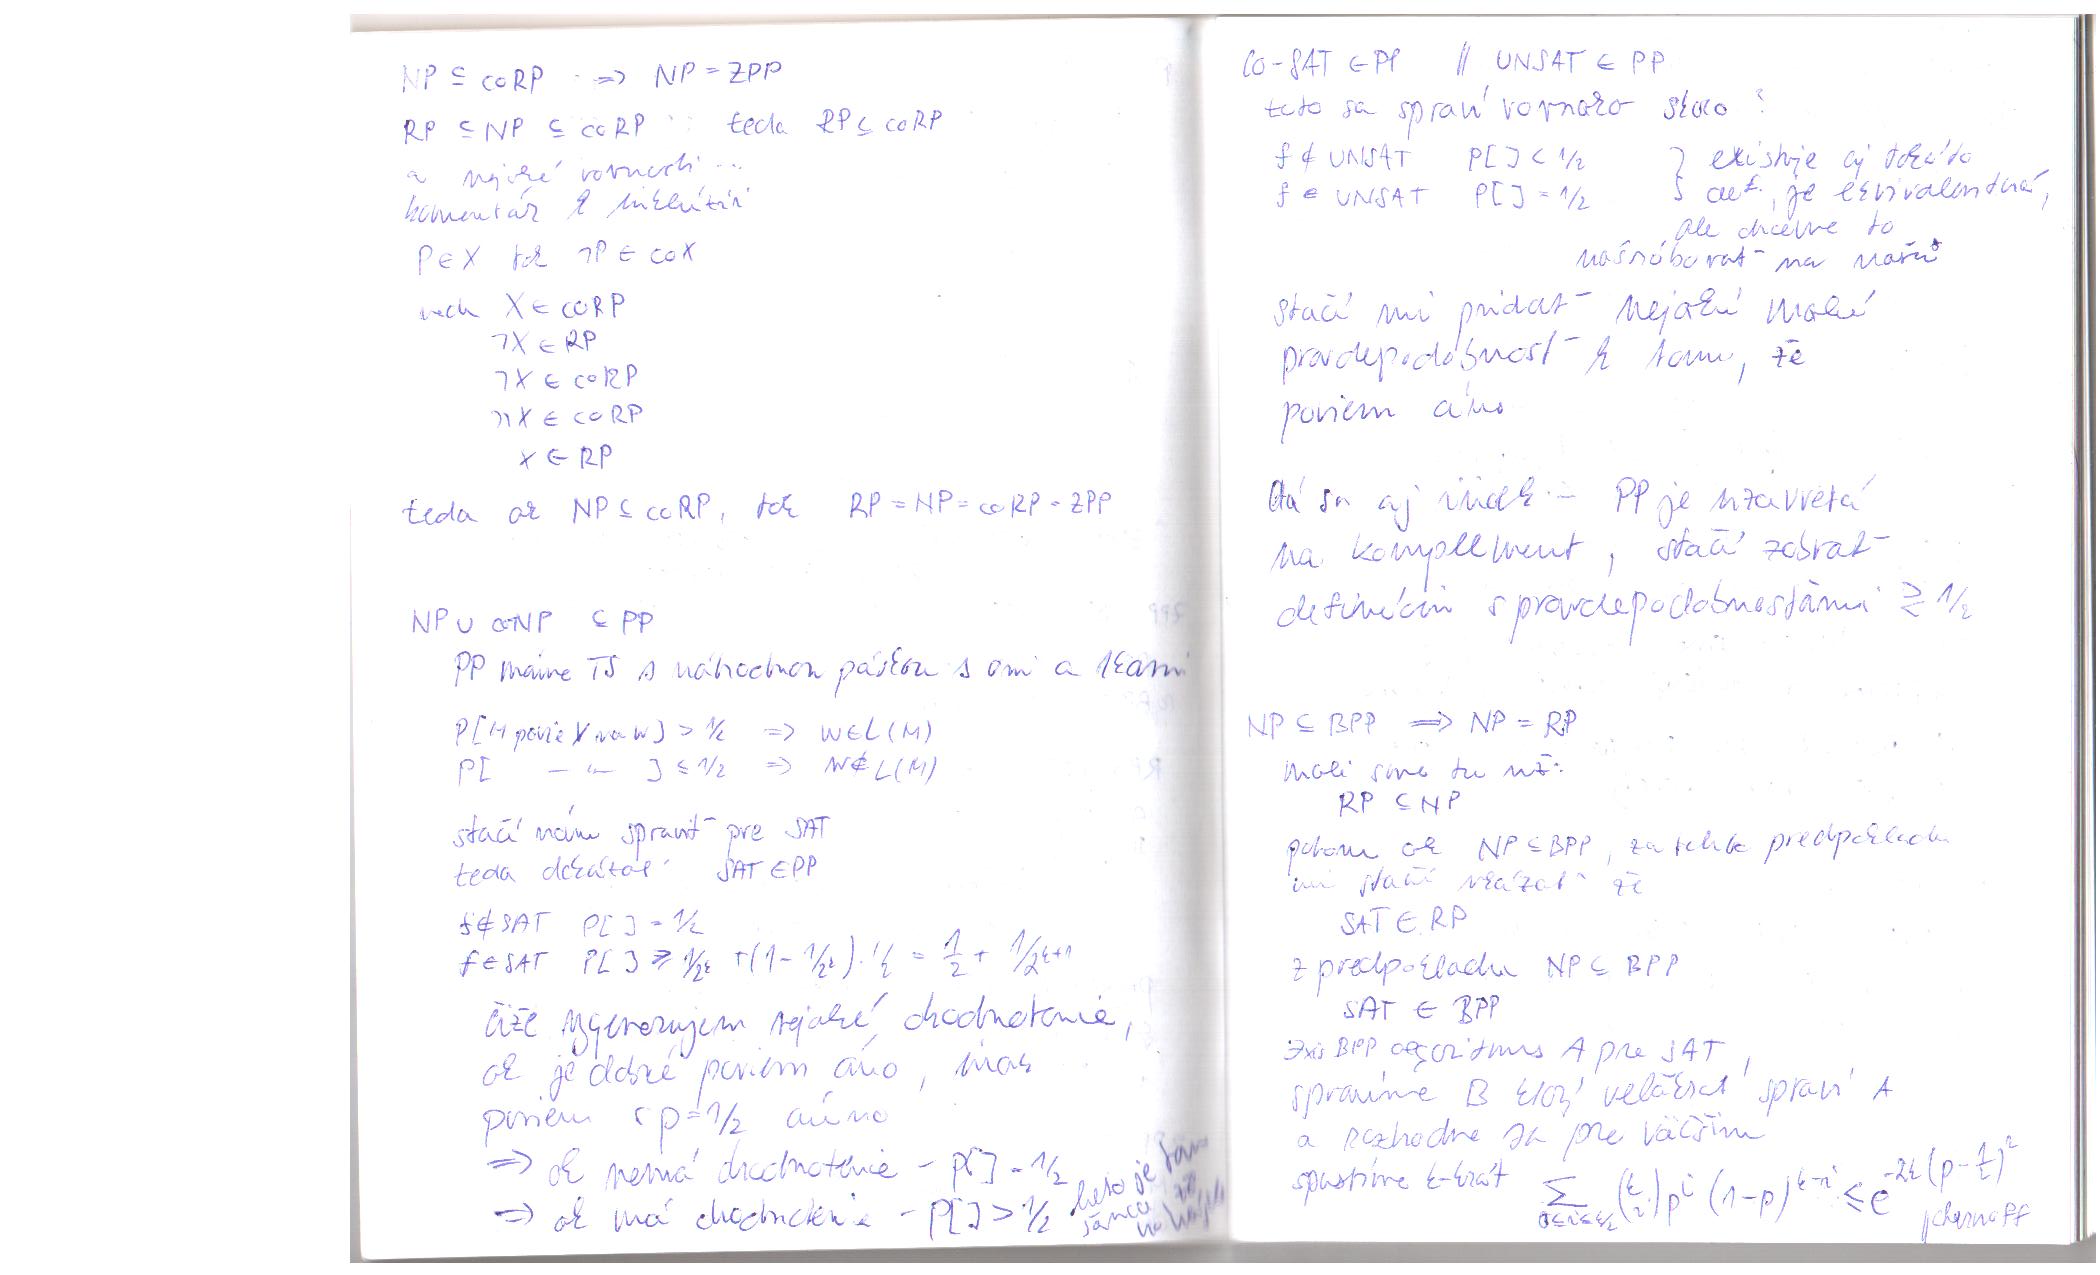 NP ⊆ coRP => NP = ZPP
RP ⊆ NP ⊆ coRP teda RP ⊆ coRP
a nejaké rovnosti ...
komentár k inklúzii
P ∈ X tak ¬P ∈ coX
nech X ∈ coRP
¬X ∈ RP
¬X ∈ coRP
¬¬X ∈ coRP
X ∈ RP
teda ak NP ⊆ coRP, tak RP = NP = coRP = ZPP
NP ∪ coNP ⊆ PP
PP máme TS s náhodnou páskou s 0mi a 1kami
P[M povie Y na w] > 1/2 => w ∈ L(M)
P[ — " — ] ≤ 1/2 => w ∉ L(M)
stačí nám spraviť pre SAT
teda dokázať SAT ∈ PP
f ∉ SAT P[ ] = 1/2
f ∈ SAT P[ ] ≥ 1/2^k + (1 - 1/2^k) · 1/2 = 1/2 + 1/2^{k+1}
čiže vygenerujem nejaké ohodnotenie,
ak je dobré poviem áno, inak
poviem s p = 1/2 áno
=> ak nemá ohodnotenie - P[ ] = 1/2
=> ak má ohodnotenie - P[ ] > 1/2 lebo je tam
šanca že
ho nájde
co-SAT ∈ PP // UNSAT ∈ PP
toto sa spraví rovnako
f ∉ UNSAT P[ ] < 1/2 } existuje aj takáto
f ∈ UNSAT P[ ] = 1/2 } def., je ekvivalentná,
ale chceme to
našróbovať na našu
stačí mi pridať nejakú malú
pravdepodobnosť k tomu, že
poviem áno
dá sa aj inak - PP je uzavretá
na komplement, stačí zobrať
definíciu s pravdepodobnosťami ≥ 1/2
NP ⊆ BPP => NP = RP
mali sme tu už:
RP ⊆ NP
potom ak NP ⊆ BPP, za tohto predpokladu
mi stačí ukázať že
SAT ∈ RP
z predpokladu NP ⊆ BPP
SAT ∈ BPP
∃xis BPP algoritmus A pre SAT,
spravíme B ktorý veľakrát spraví A
a rozhodne sa pre väčšinu
spustíme k-krát ∑_{0≤i≤k/2} (k i) p^i (1-p)^{k-i} ≤ e^{-2k(p-1/2)^2}
chernoff